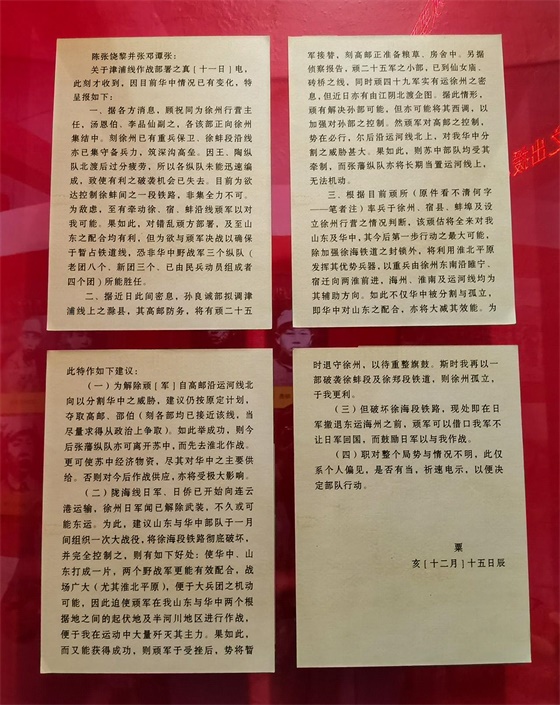 陈张饶黎并张邓谭张：
关于津浦线作战部署之真［十一日］电，
此刻才收到，因目前华中情况已有变化，特
呈报如下：
一、据各方消息，顾祝同为徐州行营主
任，汤恩伯、李品仙副之，各该部正向徐州
集结中。刻徐州已有重兵保卫、徐蚌段沿线
亦已集守备兵力，筑深沟高垒。因王、陶纵
队北渡后过分疲劳，所以各纵队未能迅速编
成，致使有利之破袭机会已失去。目前为欲
达控制徐蚌间之一段铁路，非集全力不可。
为敌虑，至有牵动徐、宿、蚌沿线顽军以对
我可能。果如此，对错乱顽方部署，及至山
东之配合均有利，但为欲与顽军决战以确保
于暂占铁道线，恐非华中野战军三个纵队（
老团八个、新团三个、已由民兵动员组成者
四个团）所能胜任。
二、据近日此间密息，孙良诚部拟调津
浦线上之滁县，其高邮防务，将有顽二十五
军接替，刻高邮正准备粮草、房舍中。另据
侦察报告，顽二十五军之小部，已到仙女庙、
砖桥之线，同时顽四十九军实有运徐州之密
息，但近日亦有由江阴北渡企图。据此情形，
顽有解决孙部可能，但亦可能将其西调，以
加强对孙部之控制。然顽军对高邮之控制，
势在必行，尔后沿运河线北上，对我华中分
割之威胁甚大。果如此，则苏中部队均受其
牵制，而张藩纵队亦将长期当置运河线上，
无法机动。
三、根据目前顽所（原件看不清何字
——笔者注）率兵于徐州、宿县、蚌埠及设
立徐州行营之情况判断，该顽估将全来对我
山东及华中，其今后第一步行动之最大可能，
除加强徐海铁道之封锁外，将利用淮北平原
发挥其优势兵器，以重兵由徐州东南沿睢宁、
宿迁向两淮前进，海州、淮南及运河线均为
其辅助方向。如此不仅华中被分割与孤立，
即华中对山东之配合，亦将大减其效能。为
此特作如下建议：
（一）为解除顽［军］自高邮沿运河线北
向以分割华中之威胁，建议仍按原定计划，
夺取高邮、邵伯（刻各部均已接近该线，当
尽量求得从政治上争取）。如此举成功，则今
后张藩纵队亦可离开苏中，而先去淮北作战。
更可使苏中经济物资，尽其对华中之主要供
给。否则对今后作战供应，亦将受极大影响。
（二）陇海线日军、日侨已开始向连云
港运输，徐州日军闻已解除武装，不久或可
能东运。为此，建议山东与华中部队于一月
间组织一次大战役，将徐海段铁路彻底破坏，
并完全控制之，则有如下好处：使华中、山
东打成一片，两个野战军更能有效配合，战
场广大（尤其淮北平原），便于大兵团之机动
可能，因此迫使顽军在我山东与华中两个根
据地之间的起伏地及半河川地区进行作战，
便于我在运动中大量歼灭其主力。果如此，
而又能获得成功，则顽军于受挫后，势将暂
时退守徐州，以待重整旗鼓。斯时我再以一
部破袭徐蚌段及徐郑段铁道，则徐州孤立，
于我更利。
（三）但破坏徐海段铁路，现处即在日
军撤退东运海州之前，顽军可以借口我军不
让日军回国，而鼓励日军以与我作战。
（四）职对整个局势与情况不明，此仅
系个人偏见，是否有当，祈速电示，以便决
定部队行动。
粟
亥［十二月］十五日辰